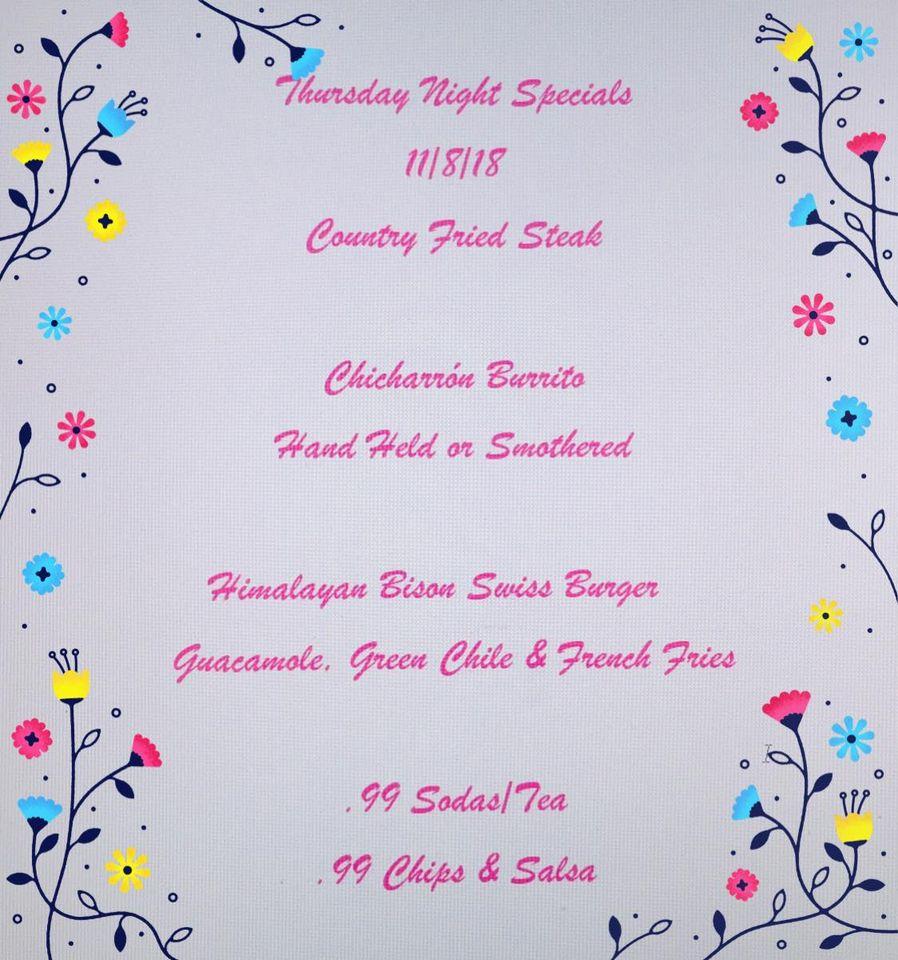 Thursday Night Specials
11/8/18
Country Fried Steak
Chicharrón Burrito
Hand Held or Smothered
Himalayan Bison Swiss Burger
Guacamole, Green Chile & French Fries
.99 Sodas/Tea
.99 Chips & Salsa